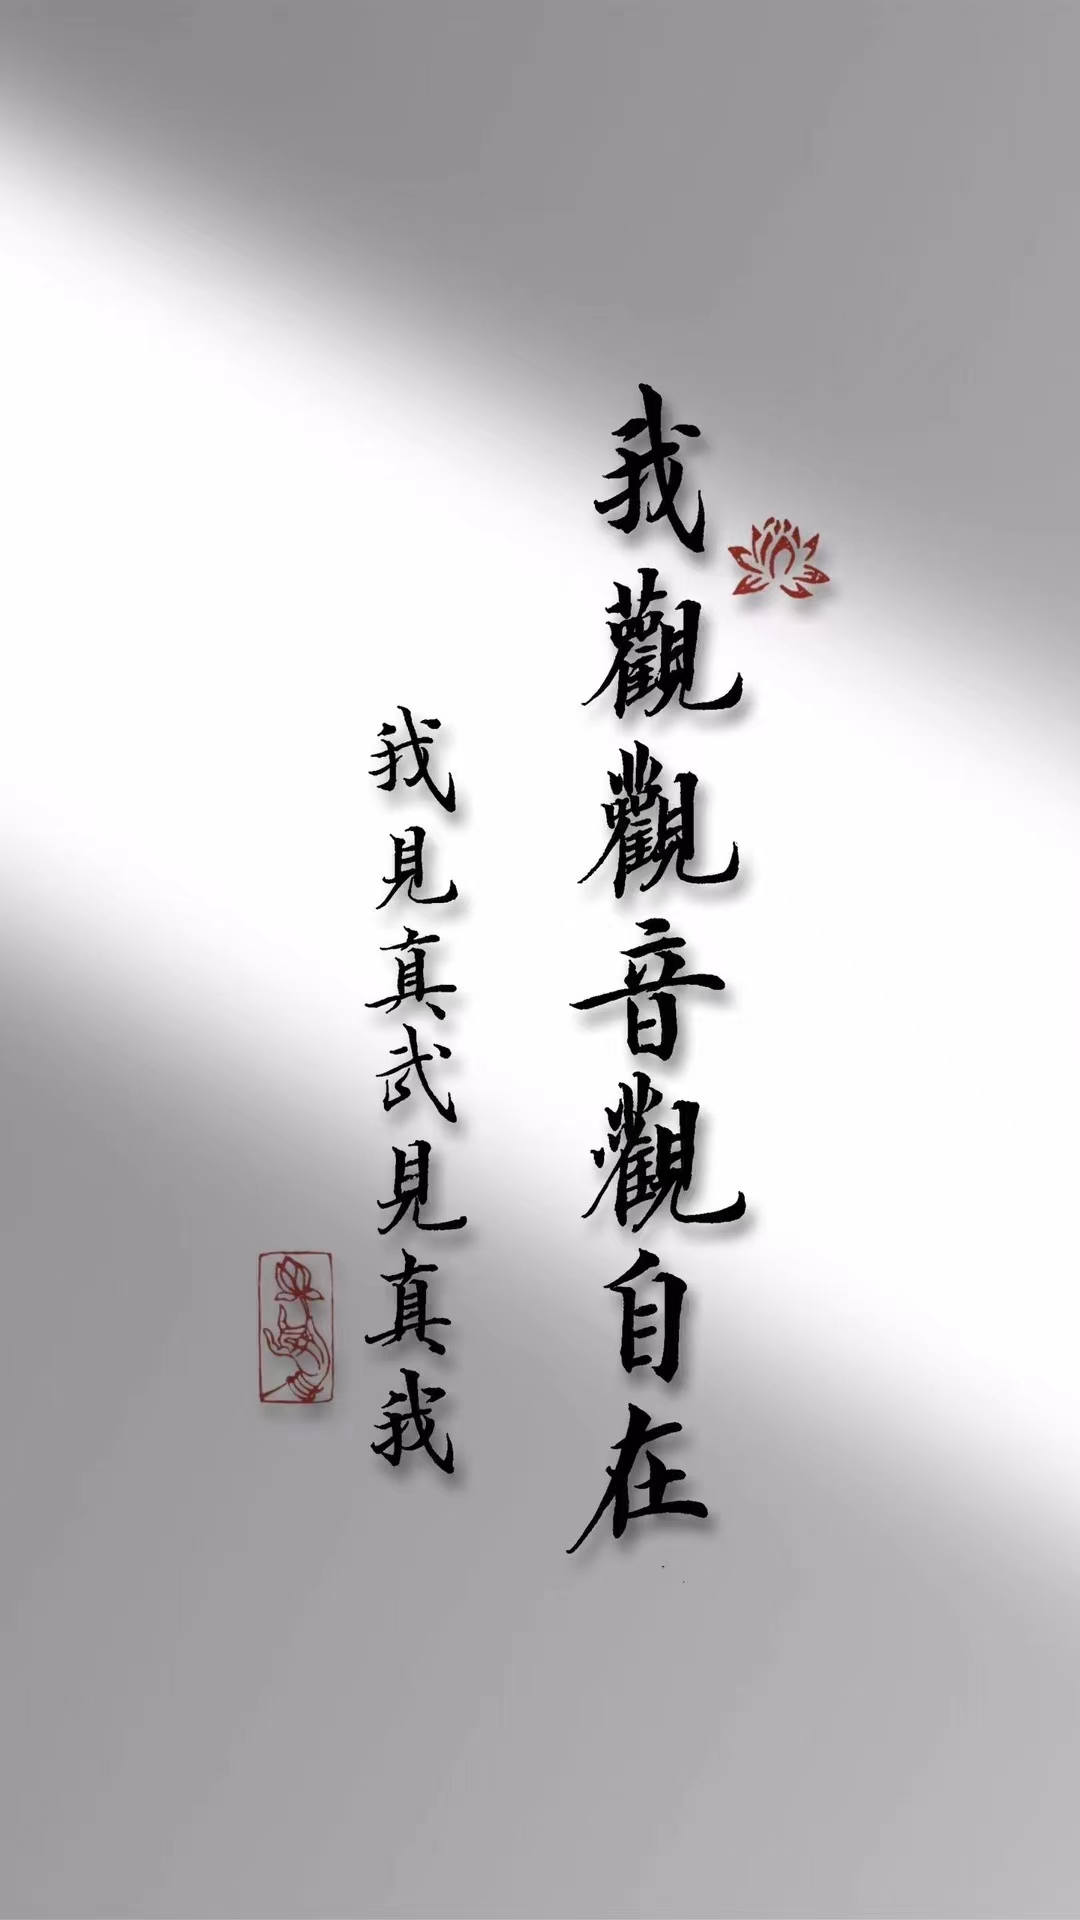 我觀觀音觀自在
我見真武見真我